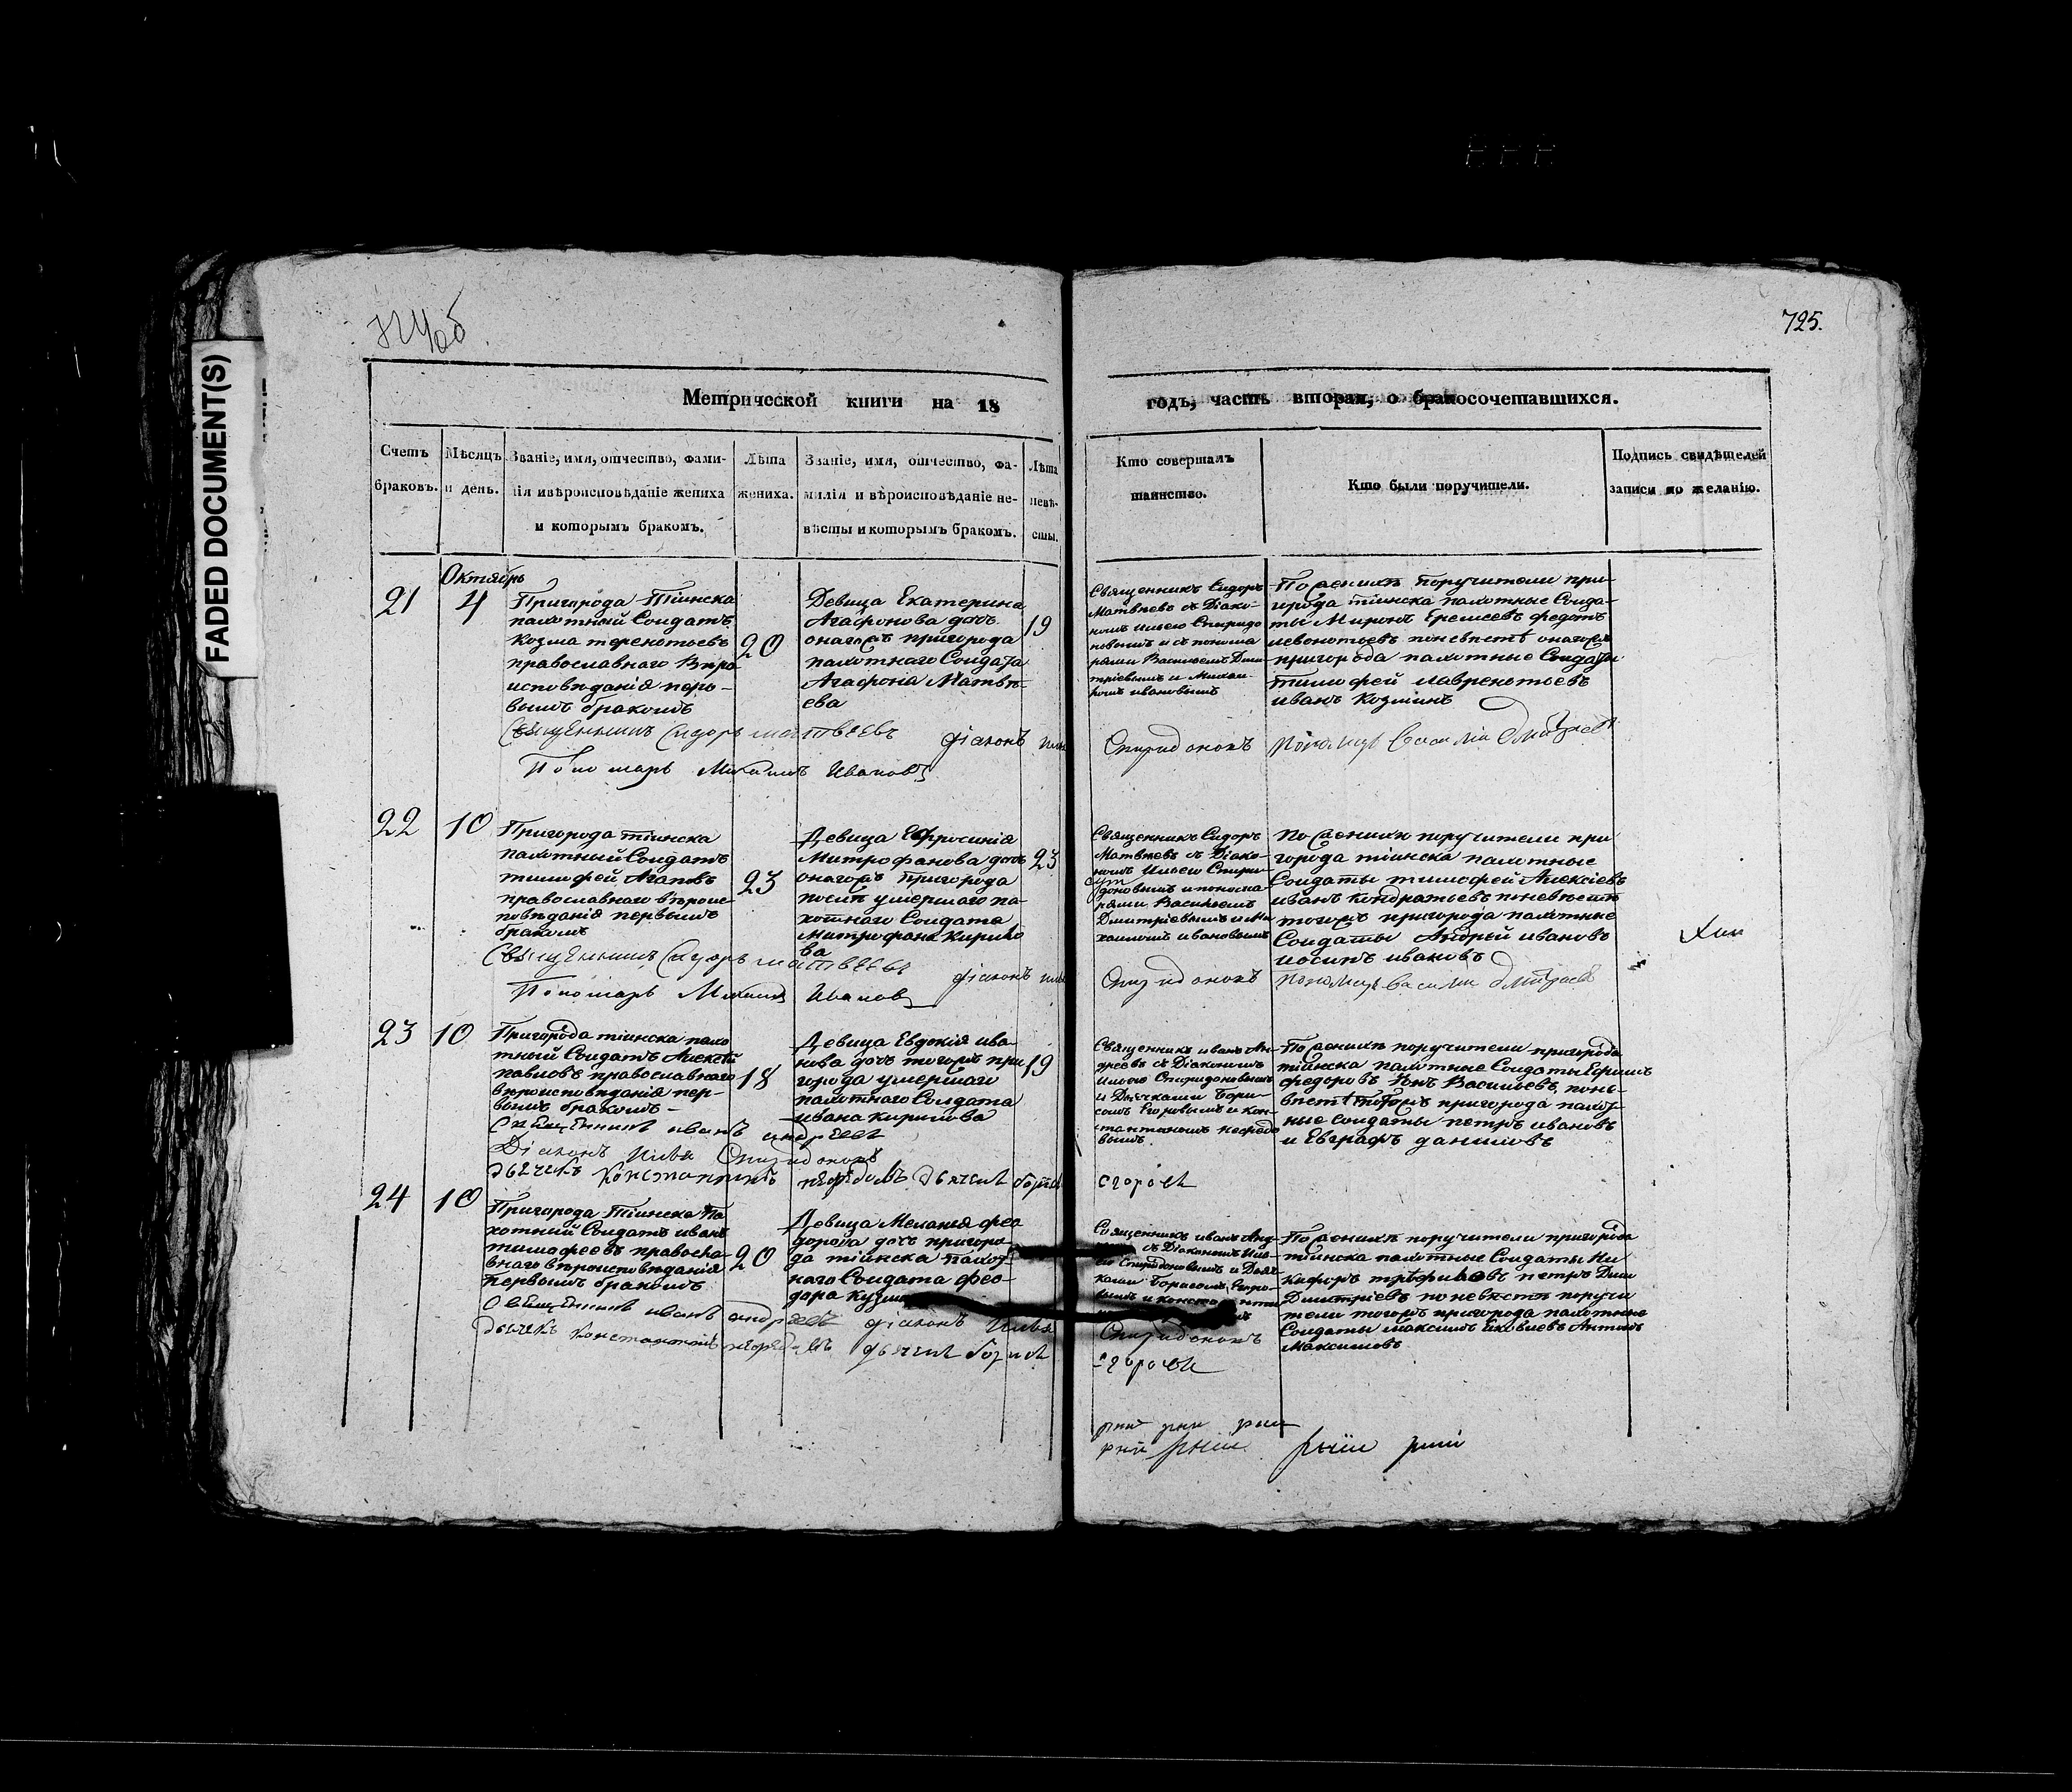 FADED DOCUMENT(S)
725.
Метрической книги на 18
годъ, часть вторая, о бракосочетавшихся.
Счетъ браковъ.
Мѣсяцъ и день.
Званіе, имя, отчество, фами-
лія и вѣроисповѣданіе жениха
и которымъ бракомъ.
Лѣта
жениха.
Званіе, имя, отчество, фа-
милія и вѣроисповѣданіе не-
вѣсты и которымъ бракомъ.
Лѣта
невѣ-
сты.
Кто совершалъ
таинство.
Кто были поручители.
Подпись свидѣтелей
записи по желанію.
21
Октябрь
4
Пригорода Тіинска
пахотный Солдатъ
Козма терентьевъ
православнаго Вѣро
исповѣданія пер-
вымъ бракомъ
20
Девица Екатерина
Агафонова дочь
онагожъ пригорода
пахотнаго Солдата
Агафона Матвѣ-
ева
19
Священникъ Сидоръ
Матвѣевъ съ Діако-
номъ Ильею Спиридо
новымъ и съ понома
рями Васильемъ Дми-
тріевымъ и Михаи-
ломъ ивановымъ
По женихѣ поручители при-
города тіинска пахотные Солда-
ты Миронъ Еремеевъ федотъ
левонтьевъ поневѣстѣ онагожъ
пригорода пахотные Солдаты
тимофей лаврентьевъ
иванъ Козминъ
Священникъ Сидоръ матвѣевъ діаконъ илья
Спиридоновъ пономарь василий дмитриевъ
Пономарь Михаилъ Ивановъ
22
10
Пригорода тіинска
пахотный Солдатъ
тимофей Агаповъ
православнаго вѣроис-
повѣданія первымъ
бракомъ
23
Девица Ефросинія
Митрофанова дочь
онагожъ Пригорода
послѣ умершаго па
хотнаго Солдата
Митрофана Кирило
ва
23
Священникъ Сидоръ
Матвѣевъ съ Діако-
номъ Ильею Спири-
доновымъ и понома
рями Васильемъ
Дмитріевымъ и Ми
хаиломъ ивановымъ
По женихѣ поручители при
города тіинска пахотные
Солдаты тимофей Алексіевъ
иванъ Кондратьевъ поневѣстѣ
тогожъ пригорода пахотные
Солдаты Андрей ивановъ
иосипъ ивановъ
Священникъ Сидоръ матвѣевъ діаконъ илья
Спиридоновъ пономарь василий дмитриевъ
Пономарь Михаилъ Ивановъ
23
10
Пригорода тіинска пахо
тный Солдатъ Алексѣй
павловъ православнаго
вѣроисповѣданія пер-
вымъ бракомъ
18
Девица Евдокія ива
нова дочь тогожъ при
города умершаго
пахотнаго Солдата
ивана кирилова
19
Священникъ иванъ Ан-
дреевъ съ Діакономъ
Ильею Спиридоновымъ
и Дьячками Бори-
сомъ Егоровымъ и Кон-
стантиномъ нефедо
вымъ
По женихѣ поручители пригорода
тіинска пахотные Солдаты Ефимъ
федоровъ Васильевъ, поне-
вѣстѣ тогожъ пригорода пахот-
ные солдаты петръ ивановъ
и Евграфъ даниловъ
Священникъ иванъ андреевъ
Діаконъ Илья Спиридоновъ
дьячекъ Константинъ нефедовъ дьячекъ борисъ
егоровъ
24
10
Пригорода Тіинска Па
хотный Солдатъ иванъ
тимофеевъ правосла
внаго вѣроисповѣданія
первымъ бракомъ
20
Девица Меланія фео
дорова дочь пригоро
да тіинска пахот
наго Солдата фео-
дора
Священникъ иванъ Анд
съ Діакономъ Иль
ею Спиридоновымъ и Дьяч
ками Борисомъ Егоро
вымъ и
По женихѣ поручители пригорода
тіинска пахотные Солдаты Ни
кифоръ петръ Дми
тріевъ по невѣстѣ поручи
тели тогожъ пригорода пахотные
Солдаты максимъ яковлевъ Антипъ
Максимовъ
Священникъ иванъ андреевъ діаконъ Илья
Спиридоновъ
дьячекъ Константинъ нефедовъ дьячекъ борисъ
егоровъ